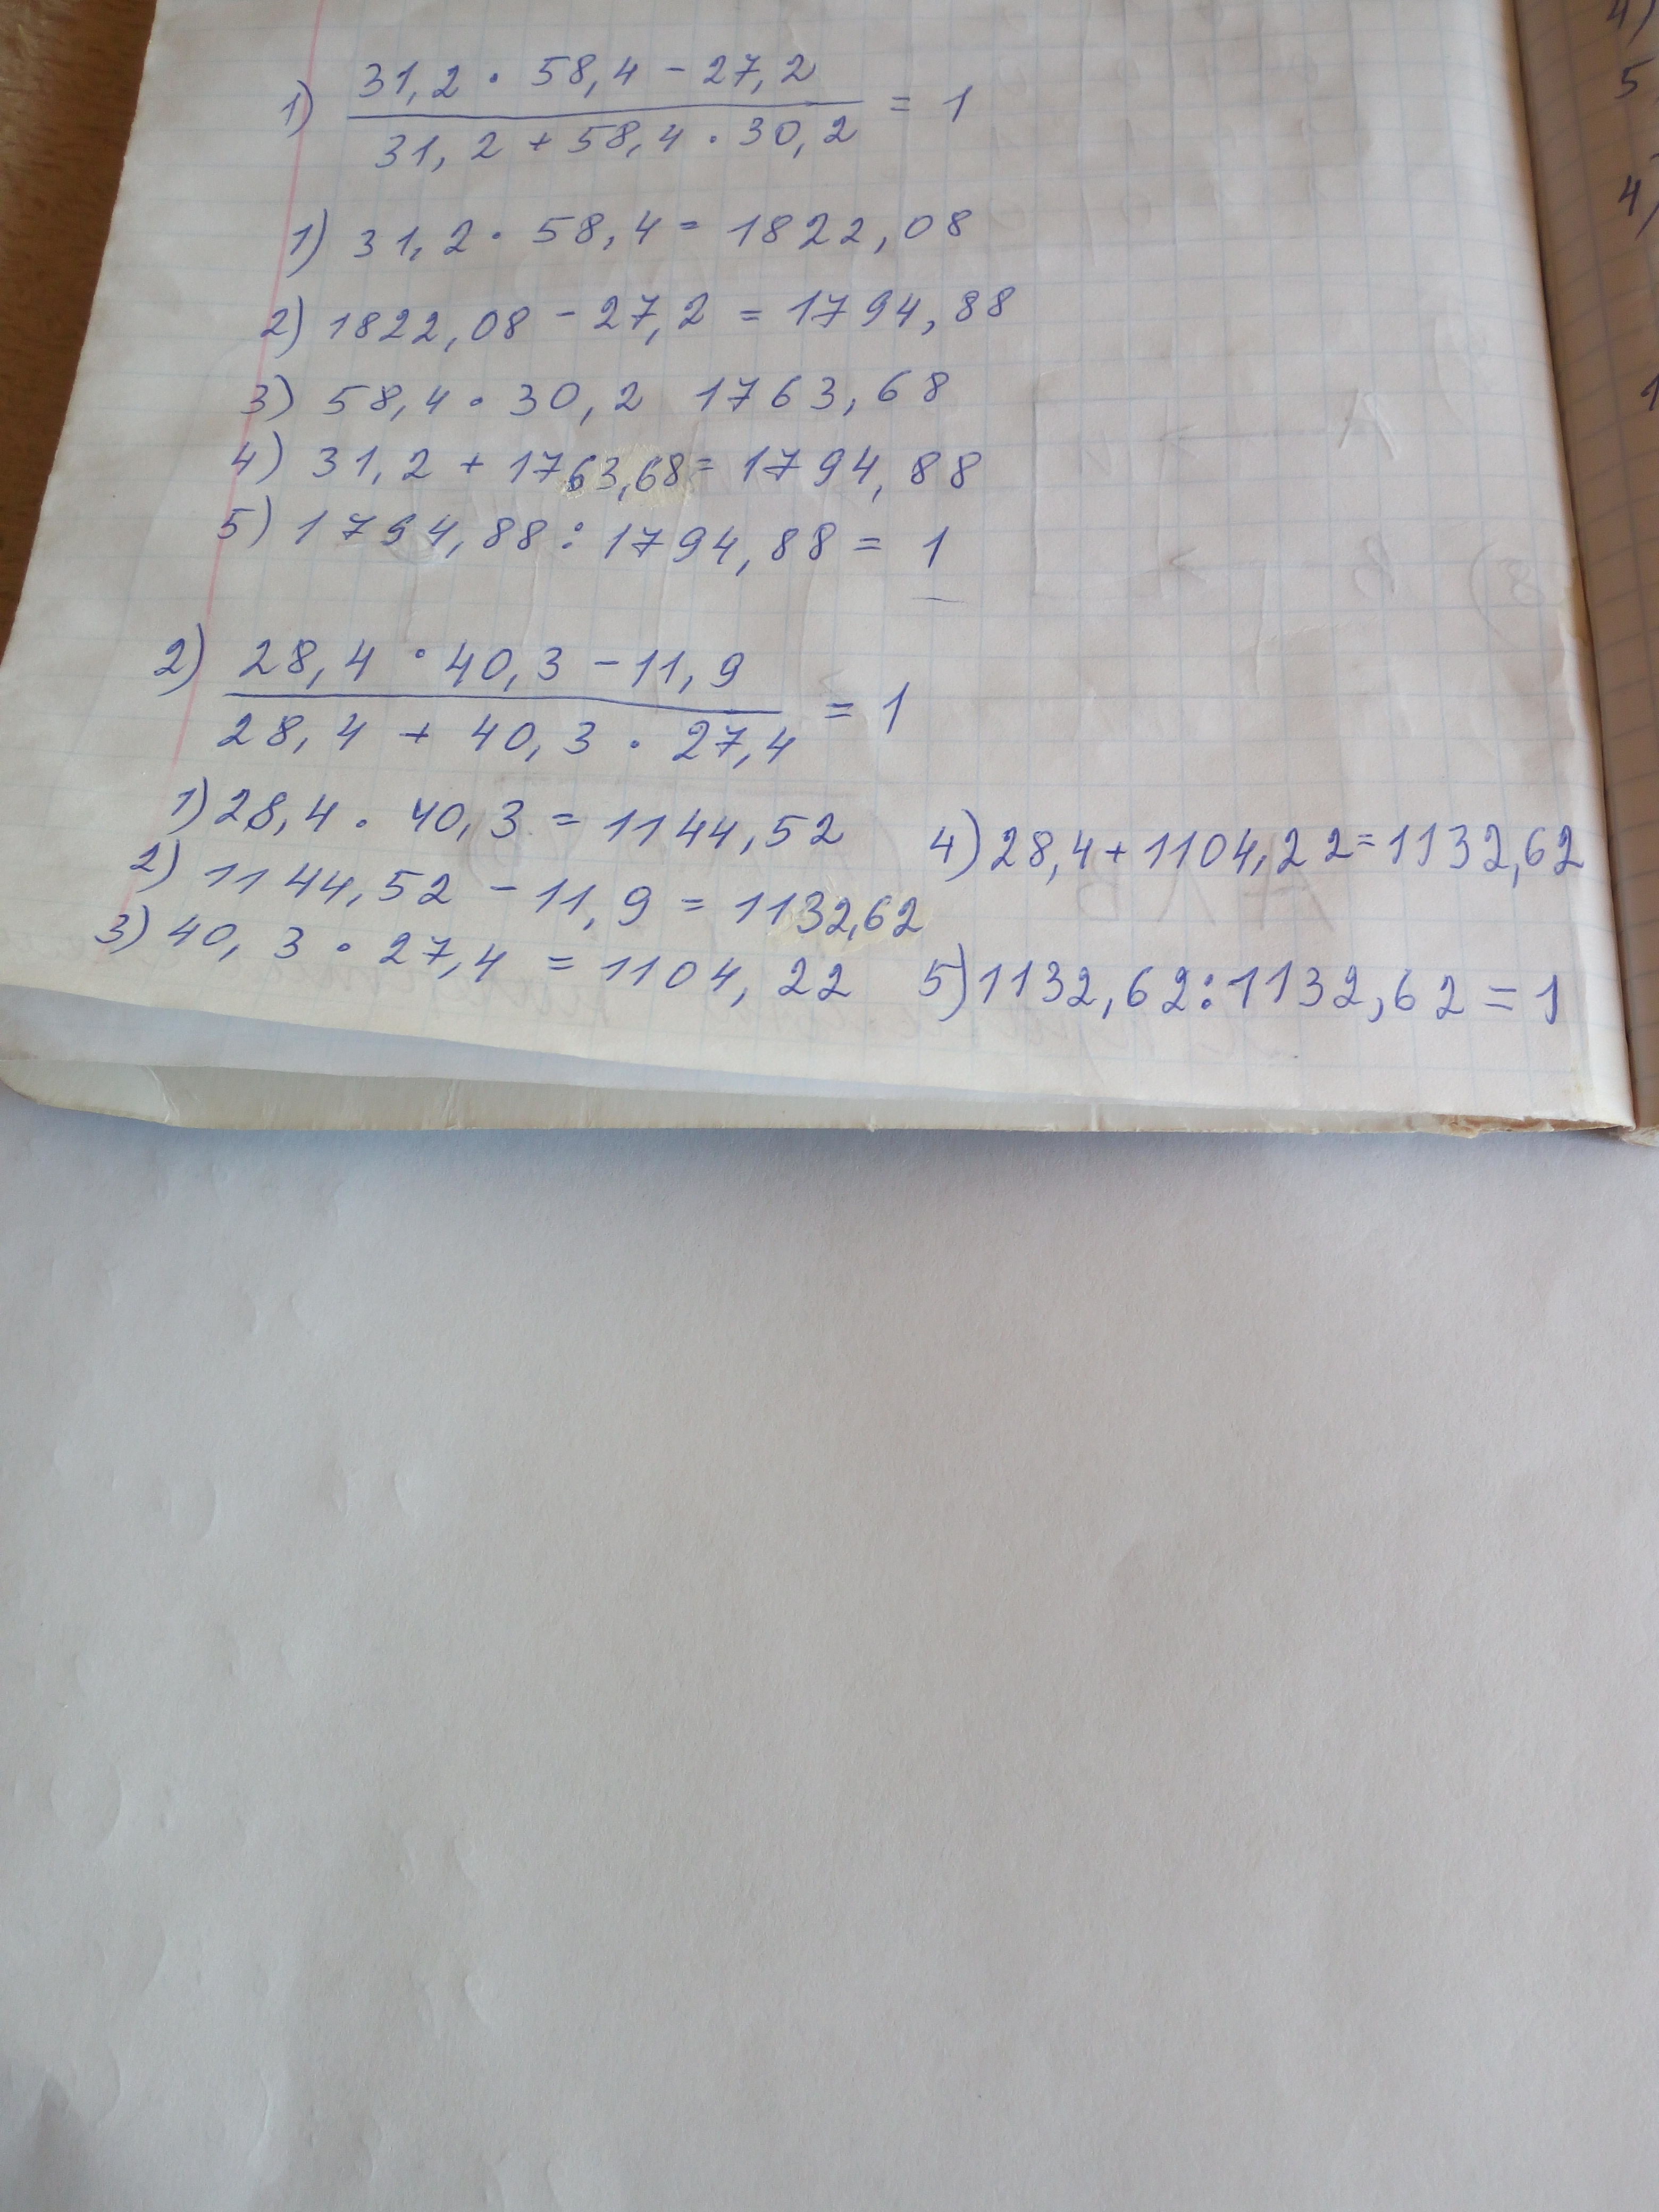 1) 31,2 · 58,4 - 27,2
31,2 + 58,4 · 30,2 = 1
1) 31,2 · 58,4 = 1822,08
2) 1822,08 - 27,2 = 1794,88
3) 58,4 · 30,2 1763,68
4) 31,2 + 1763,68 = 1794,88
5) 1794,88 : 1794,88 = 1
2) 28,4 · 40,3 - 11,9
28,4 + 40,3 · 27,4 = 1
1) 28,4 · 40,3 = 1144,52
2) 1144,52 - 11,9 = 1132,62
3) 40,3 · 27,4 = 1104,22
4) 28,4 + 1104,22 = 1132,62
5) 1132,62 : 1132,62 = 1
4)
5
4)
1